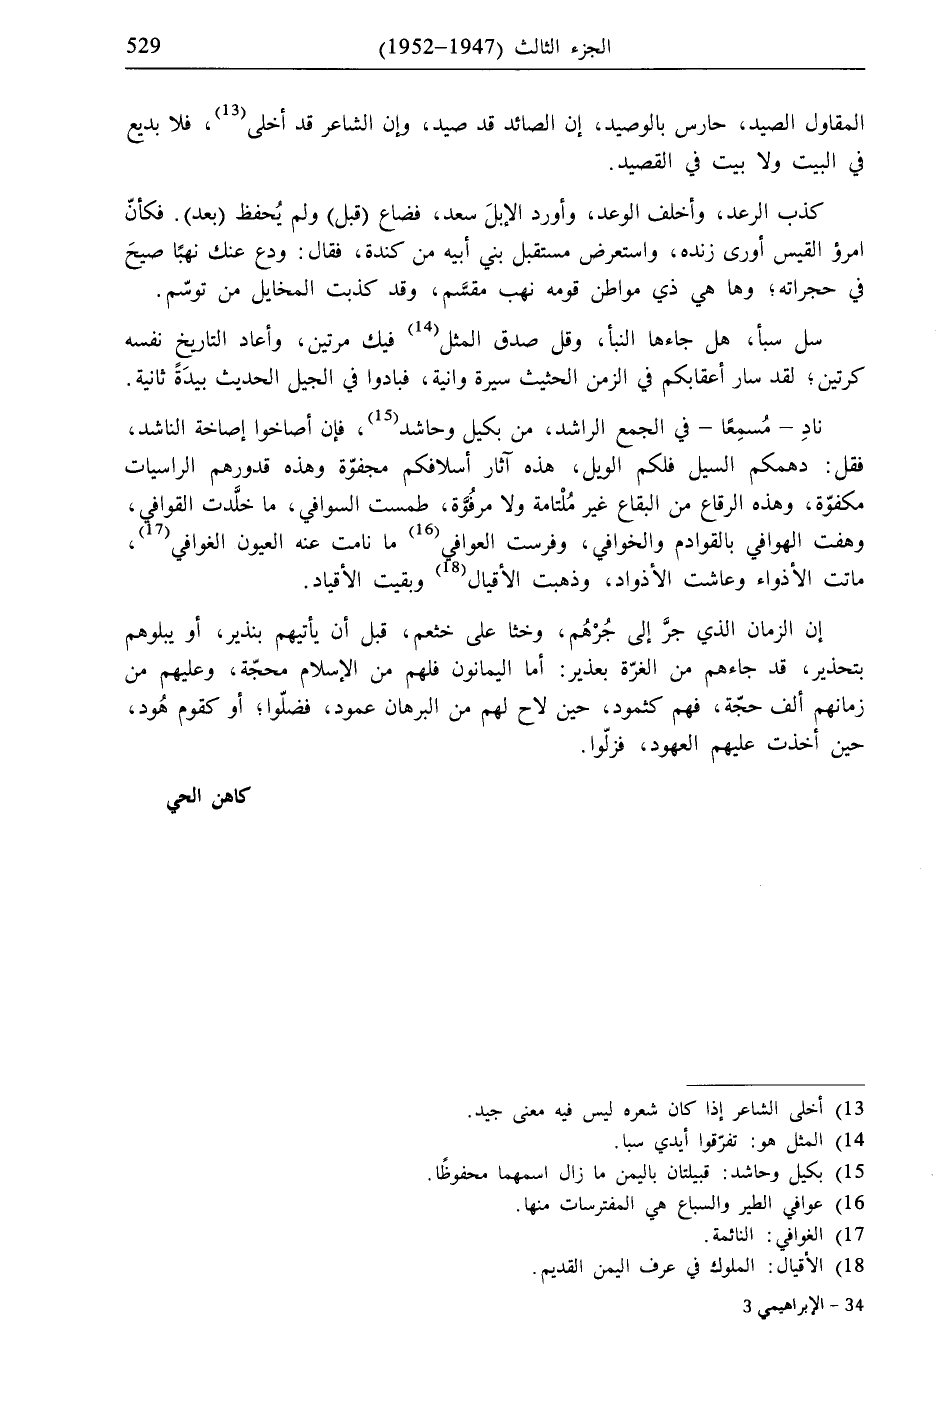 الجزء الثالث (1947–1952) 529
المقاول الصيد، حارس بالوصيد، إن الصائد قد صيد، وإن الشاعر قد أخلى(13)، فلا بديع
في البيت ولا بيت في القصيد.
كذب الرعد، وأخلف الوعد، وأورد الإبلَ سعد، فضاع (قبل) ولم يُحفظ (بعد). فكأنّ
امرؤ القيس أورى زنده، واستعرض مستقبل بني أبيه من كندة، فقال: ودع عنك نهبًا صيحَ
في حجراته؛ وها هي ذي مواطن قومه نهب مقسَّم، وقد كذبت المخايل من توسّم.
سل سبأ، هل جاءها النبأ، وقل صدق المثل(14) فيك مرتين، وأعاد التاريخ نفسه
كرتين؛ لقد سار أعقابكم في الزمن الحثيث سيرة وانية، فبادوا في الجيل الحديث بيدَةً ثانية.
نادِ – مُسمِعًا – في الجمع الراشد، من بكيل وحاشد(15)، فإن أصاخوا إصاخة الناشد،
فقل: دهمكم السيل فلكم الويل، هذه آثار أسلافكم مجفوّة وهذه قدورهم الراسيات
مكفوّة، وهذه الرقاع من البقاع غير مُلْتامة ولا مرفُوَّة، طمست السوافي، ما خلَّدت القوافي،
وهفت الهوافي بالقوادم والخوافي، وفرست العوافي(16) ما نامت عنه العيون الغوافي(17)،
ماتت الأذواء وعاشت الأذواد، وذهبت الأقيال(18) وبقيت الأقياد.
إن الزمان الذي جرَّ إلى جُرْهُم، وخثا على خثعم، قبل أن يأتيهم بنذير، أو يبلوهم
بتحذير، قد جاءهم من الغرّة بعذير: أما اليمانون فلهم من الإسلام محجّة، وعليهم من
زمانهم ألف حجّة، فهم كثمود، حين لاح لهم من البرهان عمود، فضلّوا؛ أو كقوم هُود،
حين أخذت عليهم العهود، فزلّوا.
كاهن الحي
13) أخلى الشاعر إذا كان شعره ليس فيه معنى جيد.
14) المثل هو: تفرّقوا أيدي سبا.
15) بكيل وحاشد: قبيلتان باليمن ما زال اسمهما محفوظًا.
16) عوافي الطير والسباع هي المفترسات منها.
17) الغوافي: النائمة.
18) الأقيال: الملوك في عرف اليمن القديم.
34 – الإبراهيمي 3